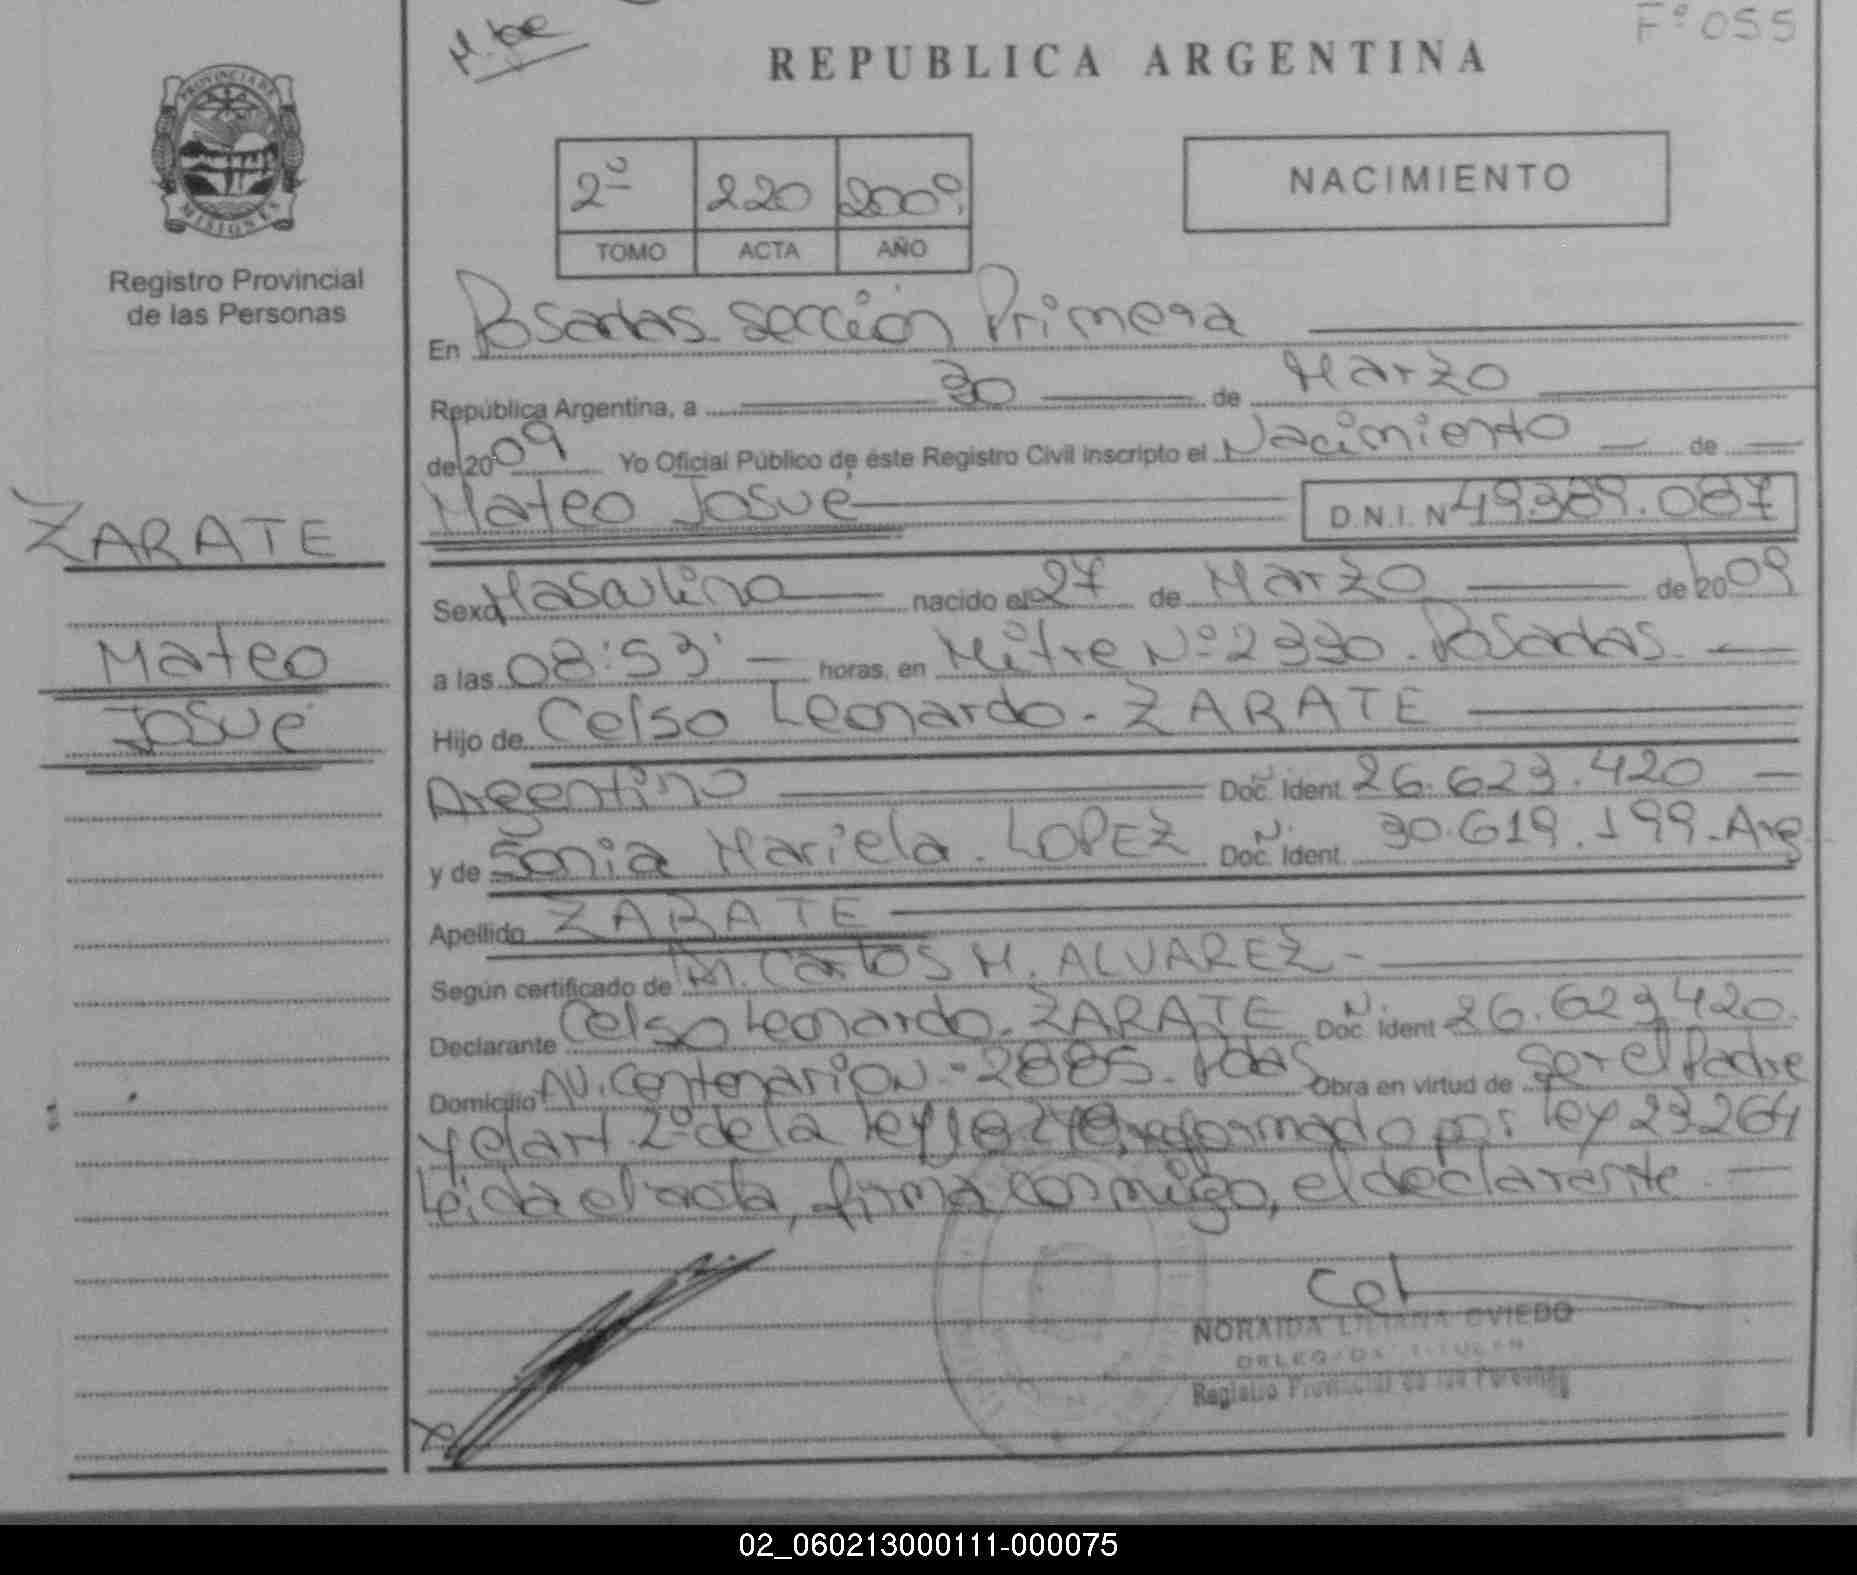 F° 055
REPUBLICA ARGENTINA
PROVINCIA DE
MISIONES
Registro Provincial
de las Personas
2º 220 2009
TOMO ACTA AÑO
NACIMIENTO
En Posadas sección Primera
República Argentina, a 30 de Marzo
de 2009 Yo Oficial Público de éste Registro Civil inscripto el Nacimiento de
Mateo Josué D.N.I. N 49.389.087
ZARATE
Mateo
Josué
Sexo Masculino nacido el 27 de Marzo de 2009
a las 08:53' horas, en Mitre Nº 2330. Posadas.
Hijo de Celso Leonardo. ZARATE
Argentino Doc. Ident. 26.623.420
y de Sonia Mariela. LOPEZ Doc. Ident. 30.619.199. Arg
Apellido ZARATE
Según certificado de M. Carlos H. ALVAREZ.-
Declarante Celso Leonardo. ZARATE Doc. Ident 26.623.420.
Domicilio AV. Centenario Nº 2885. Pdas Obra en virtud de ser el Padre
y el art 2º de la ley reformado por ley 23.264
Leida el acta, firma conmigo, el declarante
NORAIDA LILIANA OVIEDO
DELEGADA TITULAR
Registro Provincial de las Personas
02_060213000111-000075